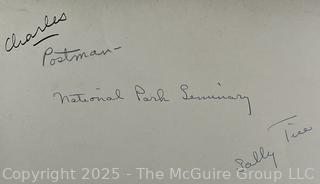 Charles
Postman-
National Park Seminary
Sally Tice
Copyright 2025 - The McGuire Group LLC